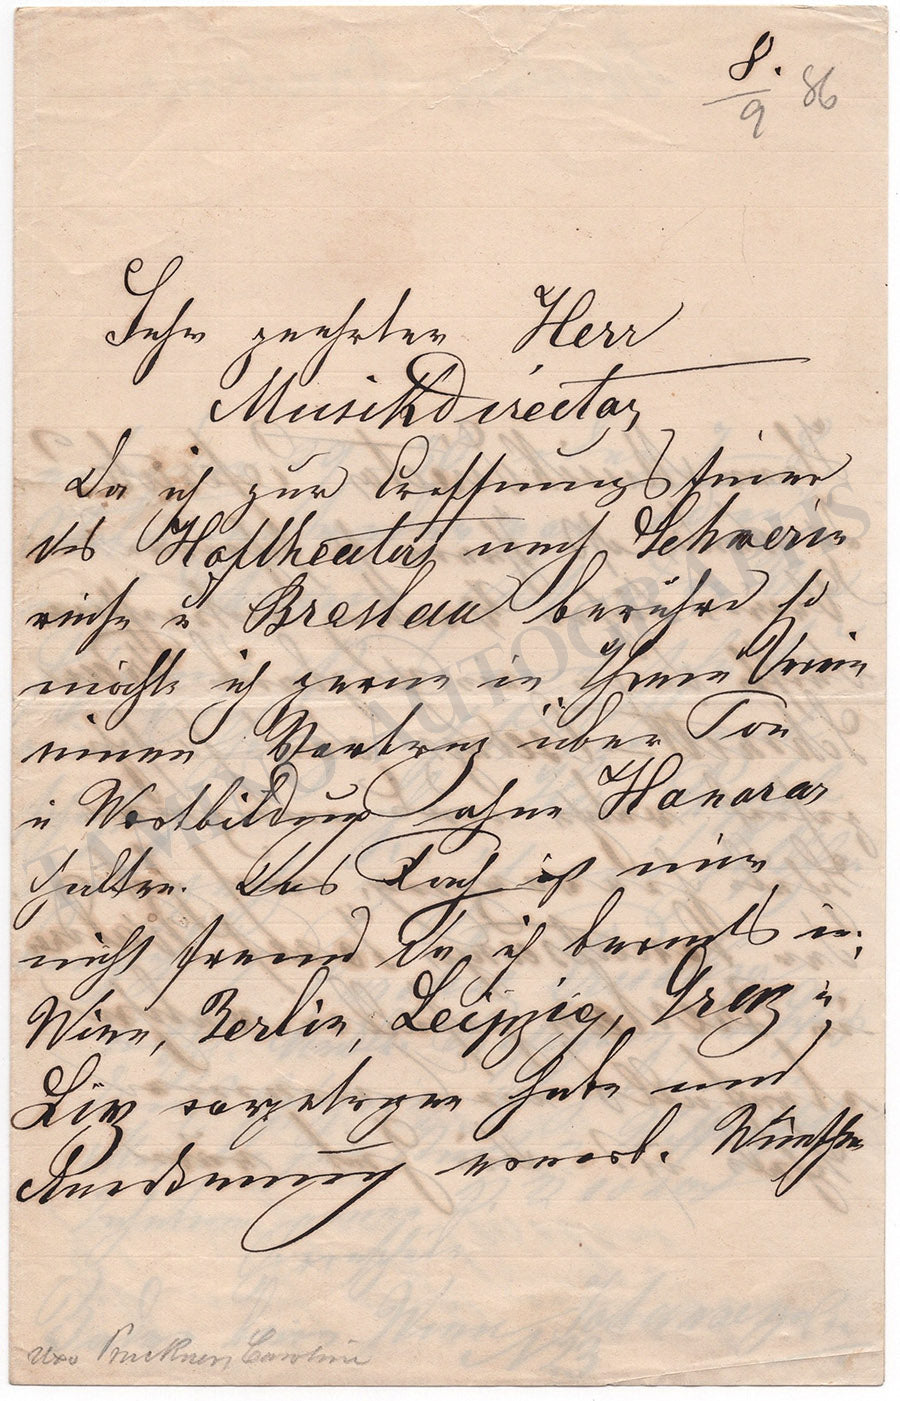 8.
9 86
Sehr geehrter Herr
Musikdirector
Da ich zur Eröffnungsfeier
des Hoftheaters nach Schwerin
reise u Breslau berühre so
möchte ich gerne in Ihrem Verein
einen Vortrag über Ton
u Wortbildung ohne Honorar
halten. Das Fach ist mir
nicht fremd da ich bereits in
Wien, Berlin, Leipzig, Graz u
Linz vorgetragen habe und
Anerkennung erwarb. Wünschen
Pruckner, Caroline
TAMINO AUTOGRAPHS